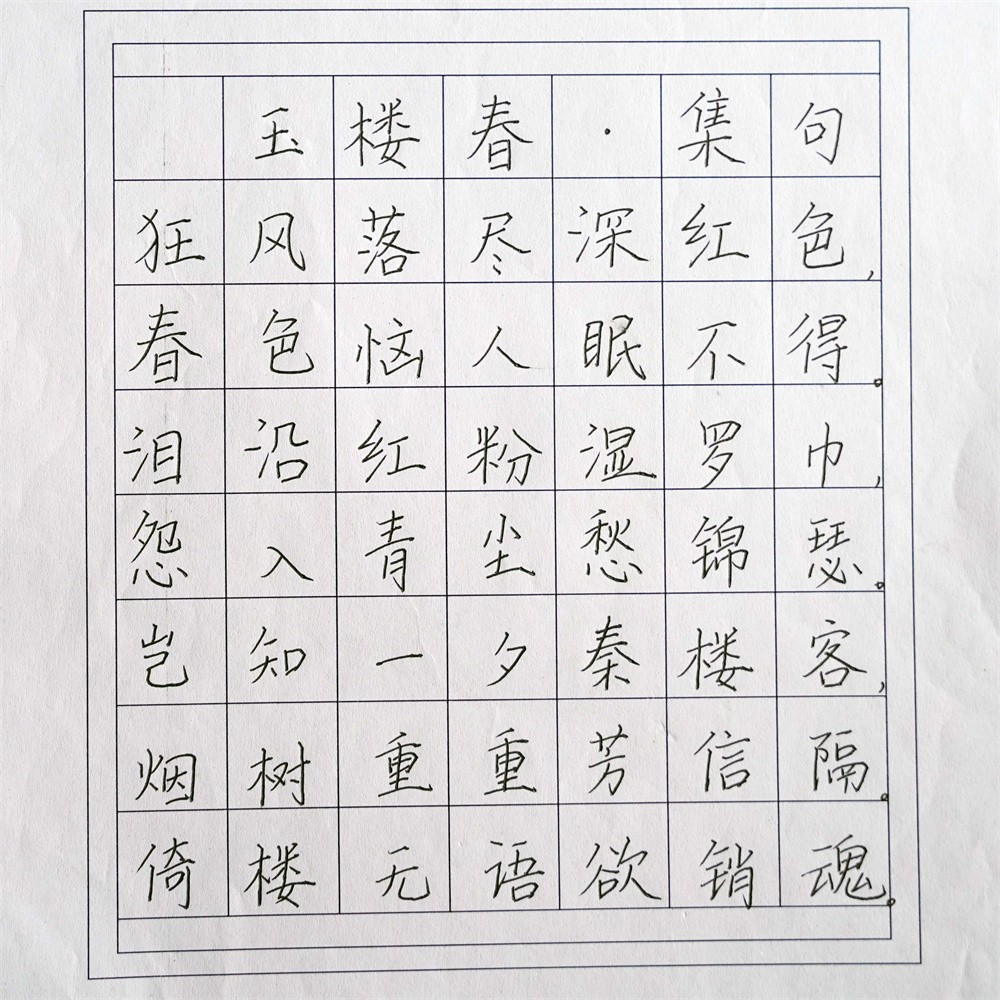 玉楼春·集句
狂风落尽深红色,
春色恼人眠不得。
泪沿红粉湿罗巾,
怨入青尘愁锦瑟。
岂知一夕秦楼客,
烟树重重芳信隔。
倚楼无语欲销魂。